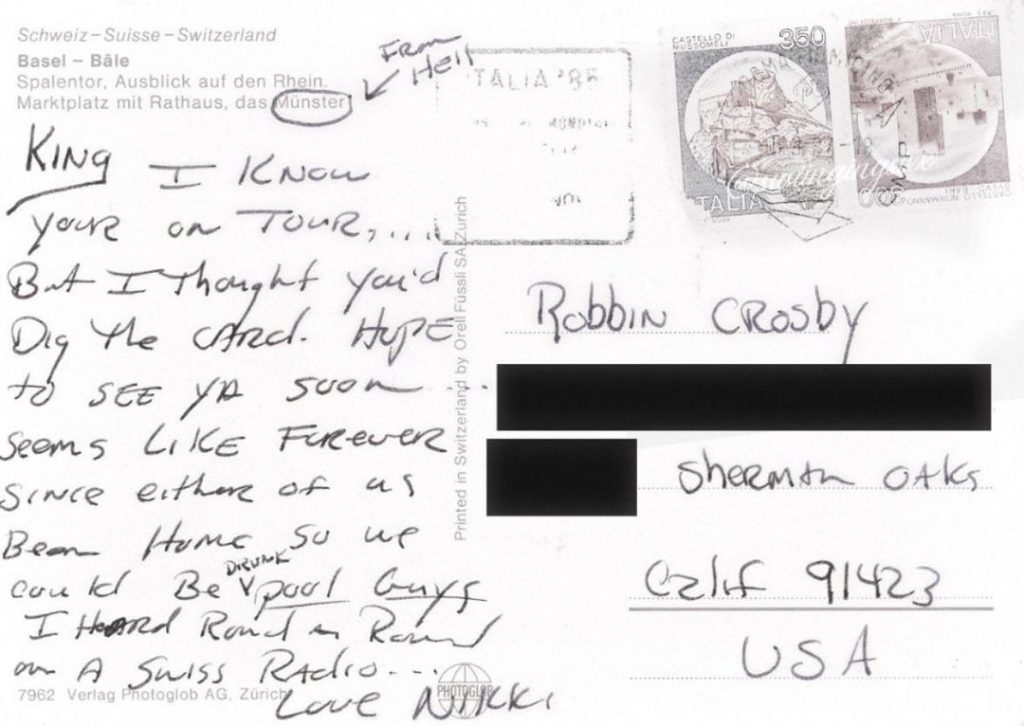 Schweiz – Suisse – Switzerland
Basel – Bâle
Spalentor, Ausblick auf den Rhein,
Marktplatz mit Rathaus, das Münster
From
Hell
KING I KNOW
YOUR on TOUR,...
But I Thought you'd
Dig the CARD. HOPE
to SEE YA soon
seems LIKE FOREVER
since either of us
Been Home so we
could Be DRUNK pool Guys
I HEARD Round n Round
on A Swiss RADIO...
Love NIKKI
7962 Verlag Photoglob AG, Zürich
PHOTOGLOB
Printed in Switzerland by Orell Füssli SA Zürich
ITALIA '85
CASTELLO DI
MUSSOMELI
350
ITALIA
ITALIA
350
Robbin CROSBY
Sherman OAKS
Calif 91423
USA